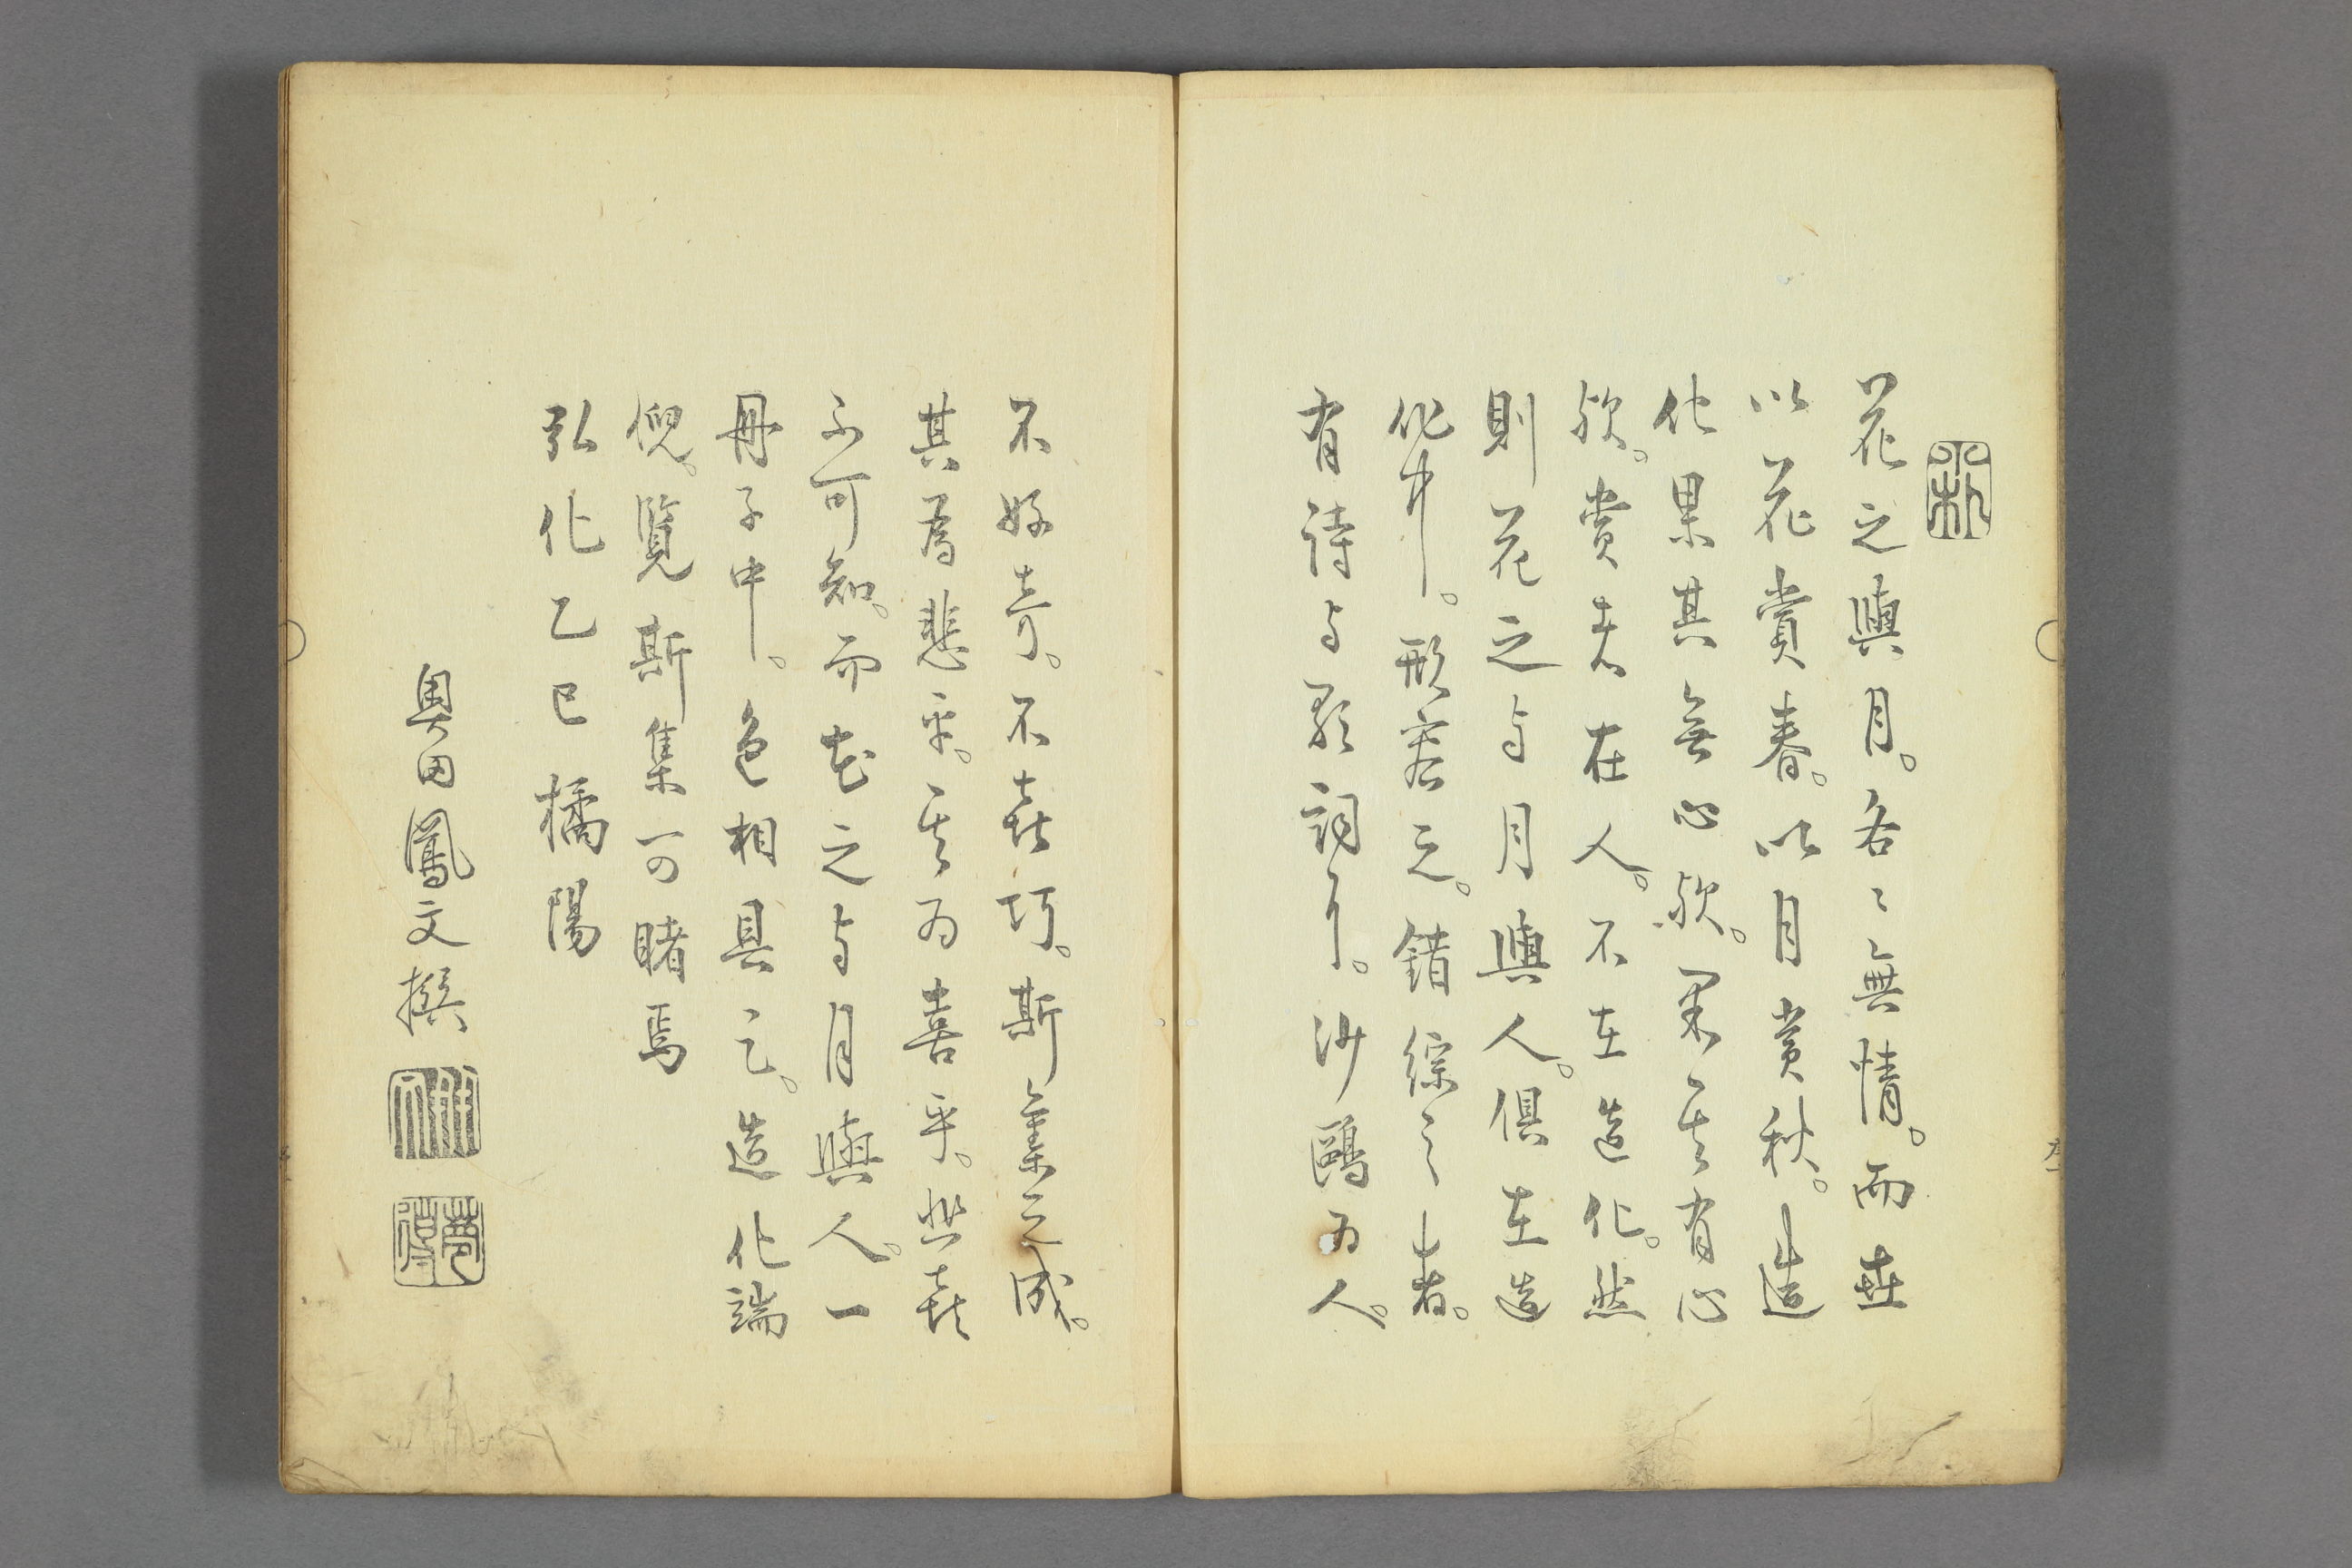 花之與月。各々無情。而世
以花賞春。以月賞秋。造
化果其無心欤。果其有心
欤。賞夫在人。不在造化。然
則花之与月與人。俱在造
化中。形容之。錯綜之者。
有詩与歌詞耳。沙鷗为人。
不好奇。不喜巧。斯集之成。
其為悲乎。其为喜乎。悲喜
不可知。而花之与月與人。一
冊子中。色相具之。造化端
倪。覽斯集可睹焉
弘化乙巳橘陽
奥田鳳文撰